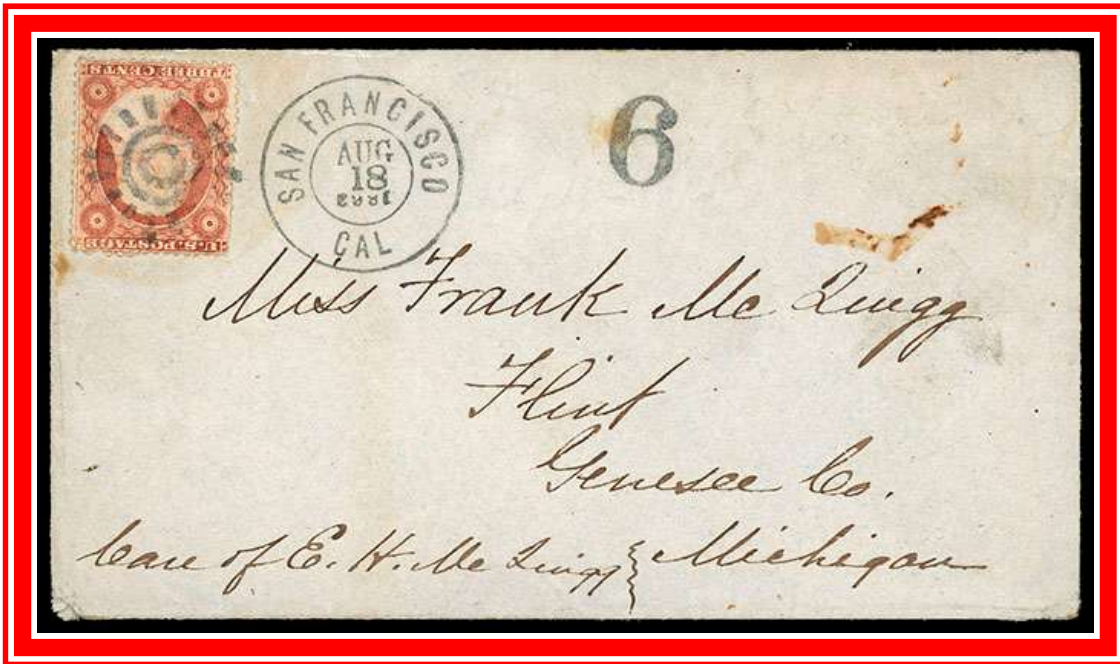 THREE CENTS
U.S. POSTAGE
SAN FRANCISCO
AUG
18
CAL
6
Miss Frank Mc Quigg
Flint
Genesee Co.
Care of E. H. Mc Quigg Michigan